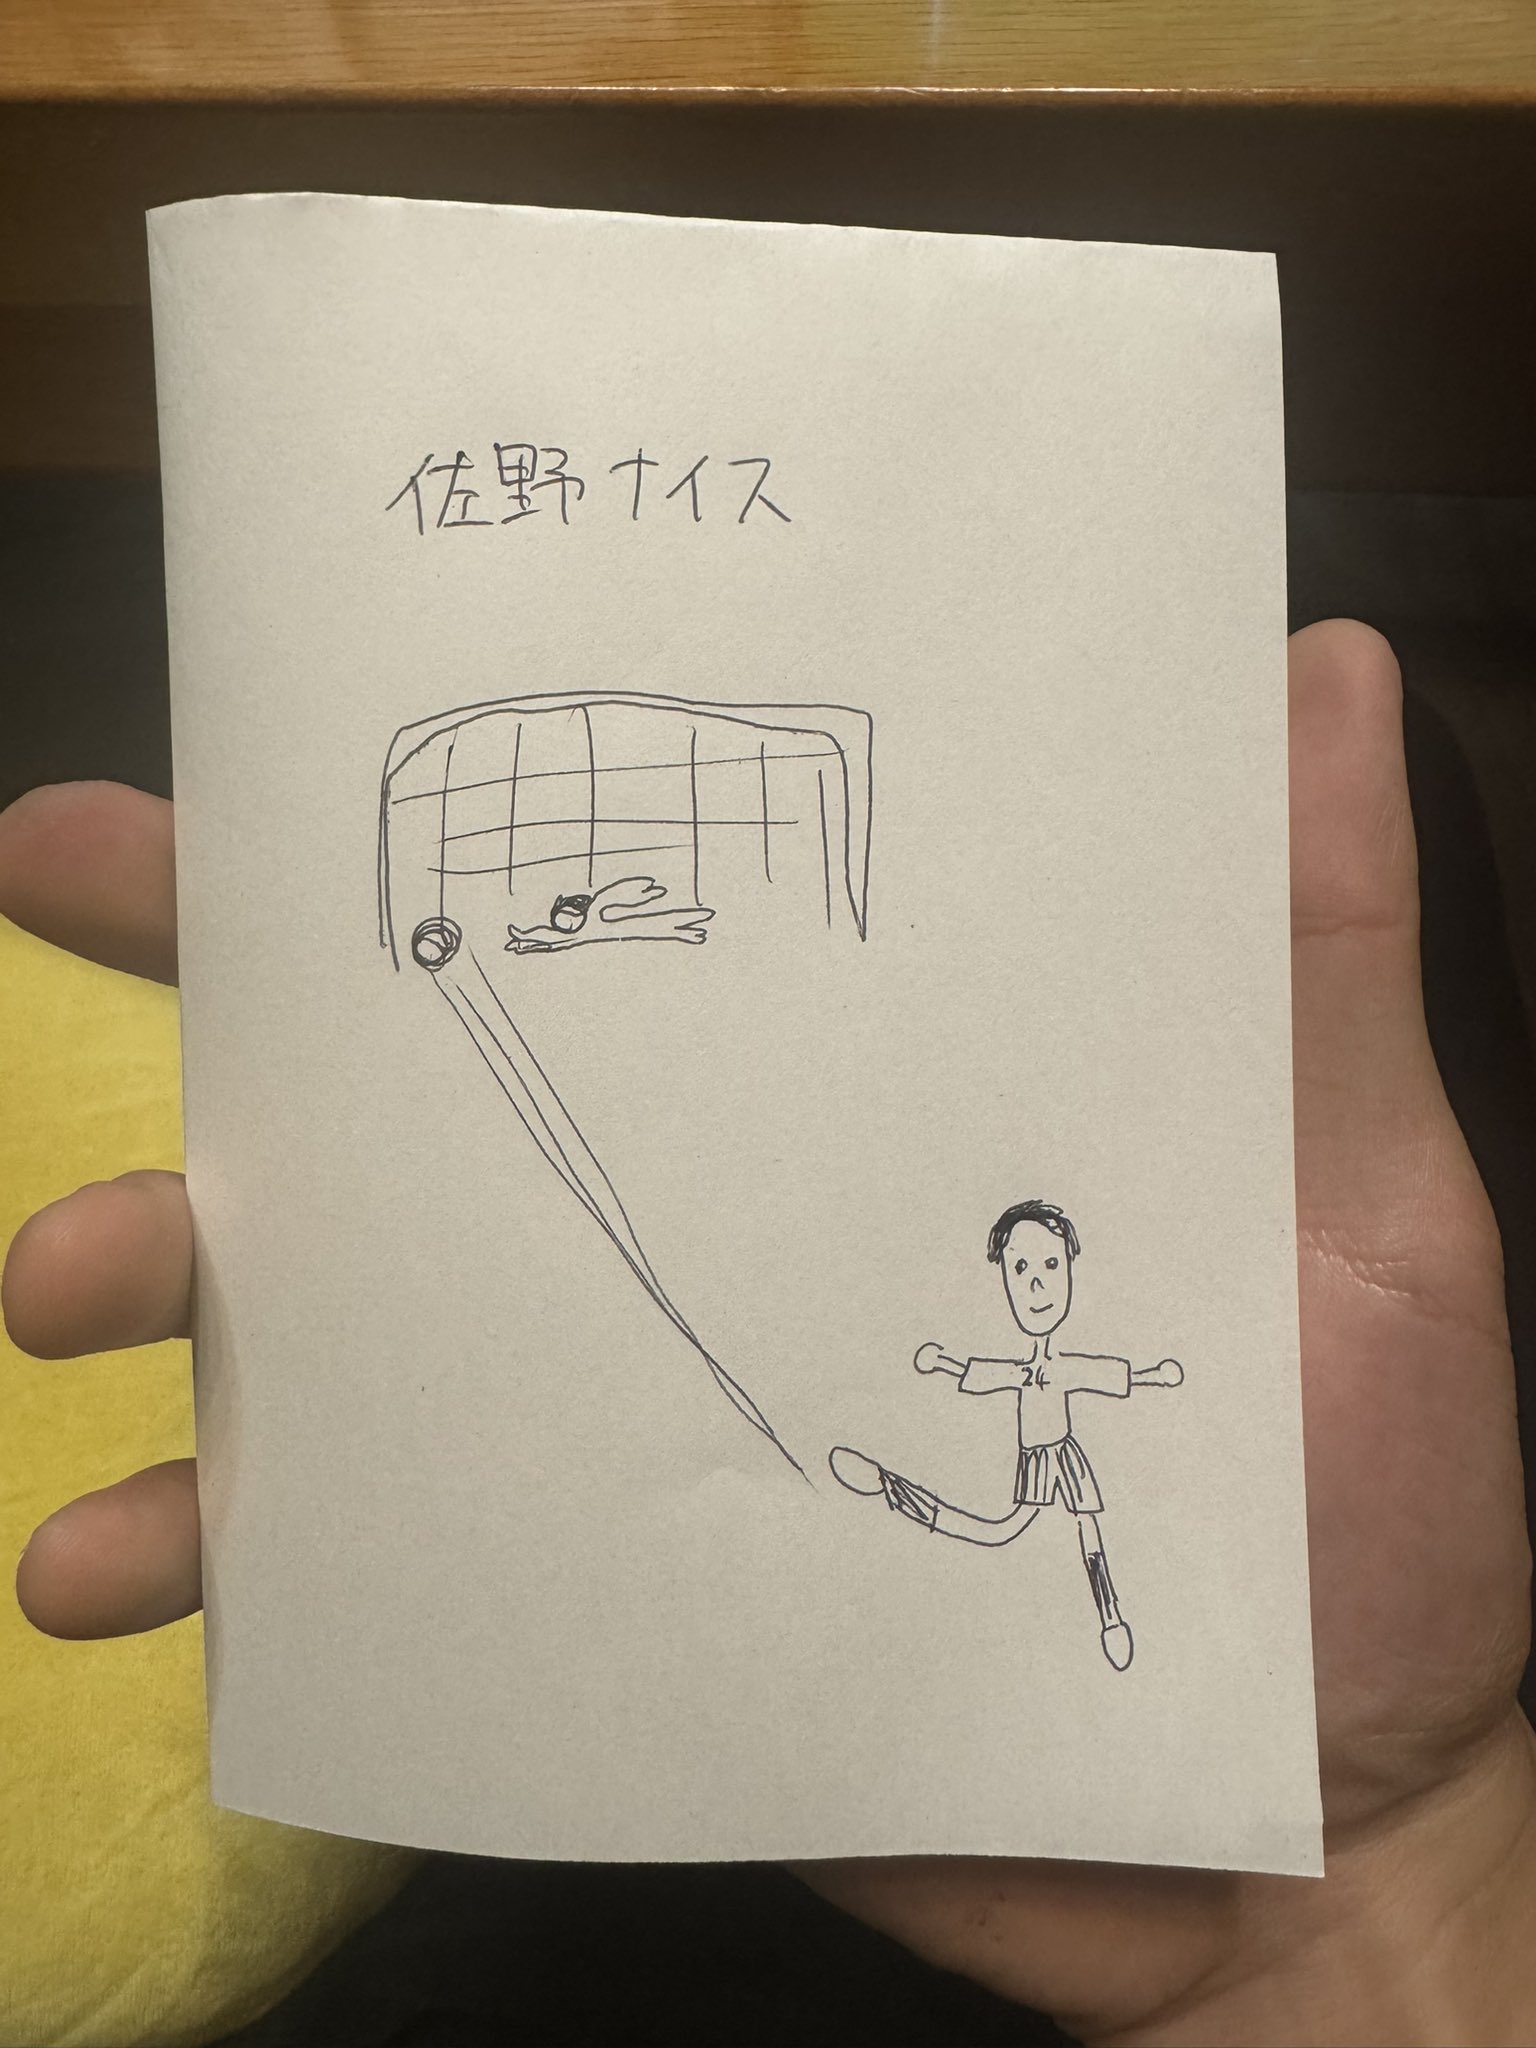 佐野ナイス
24